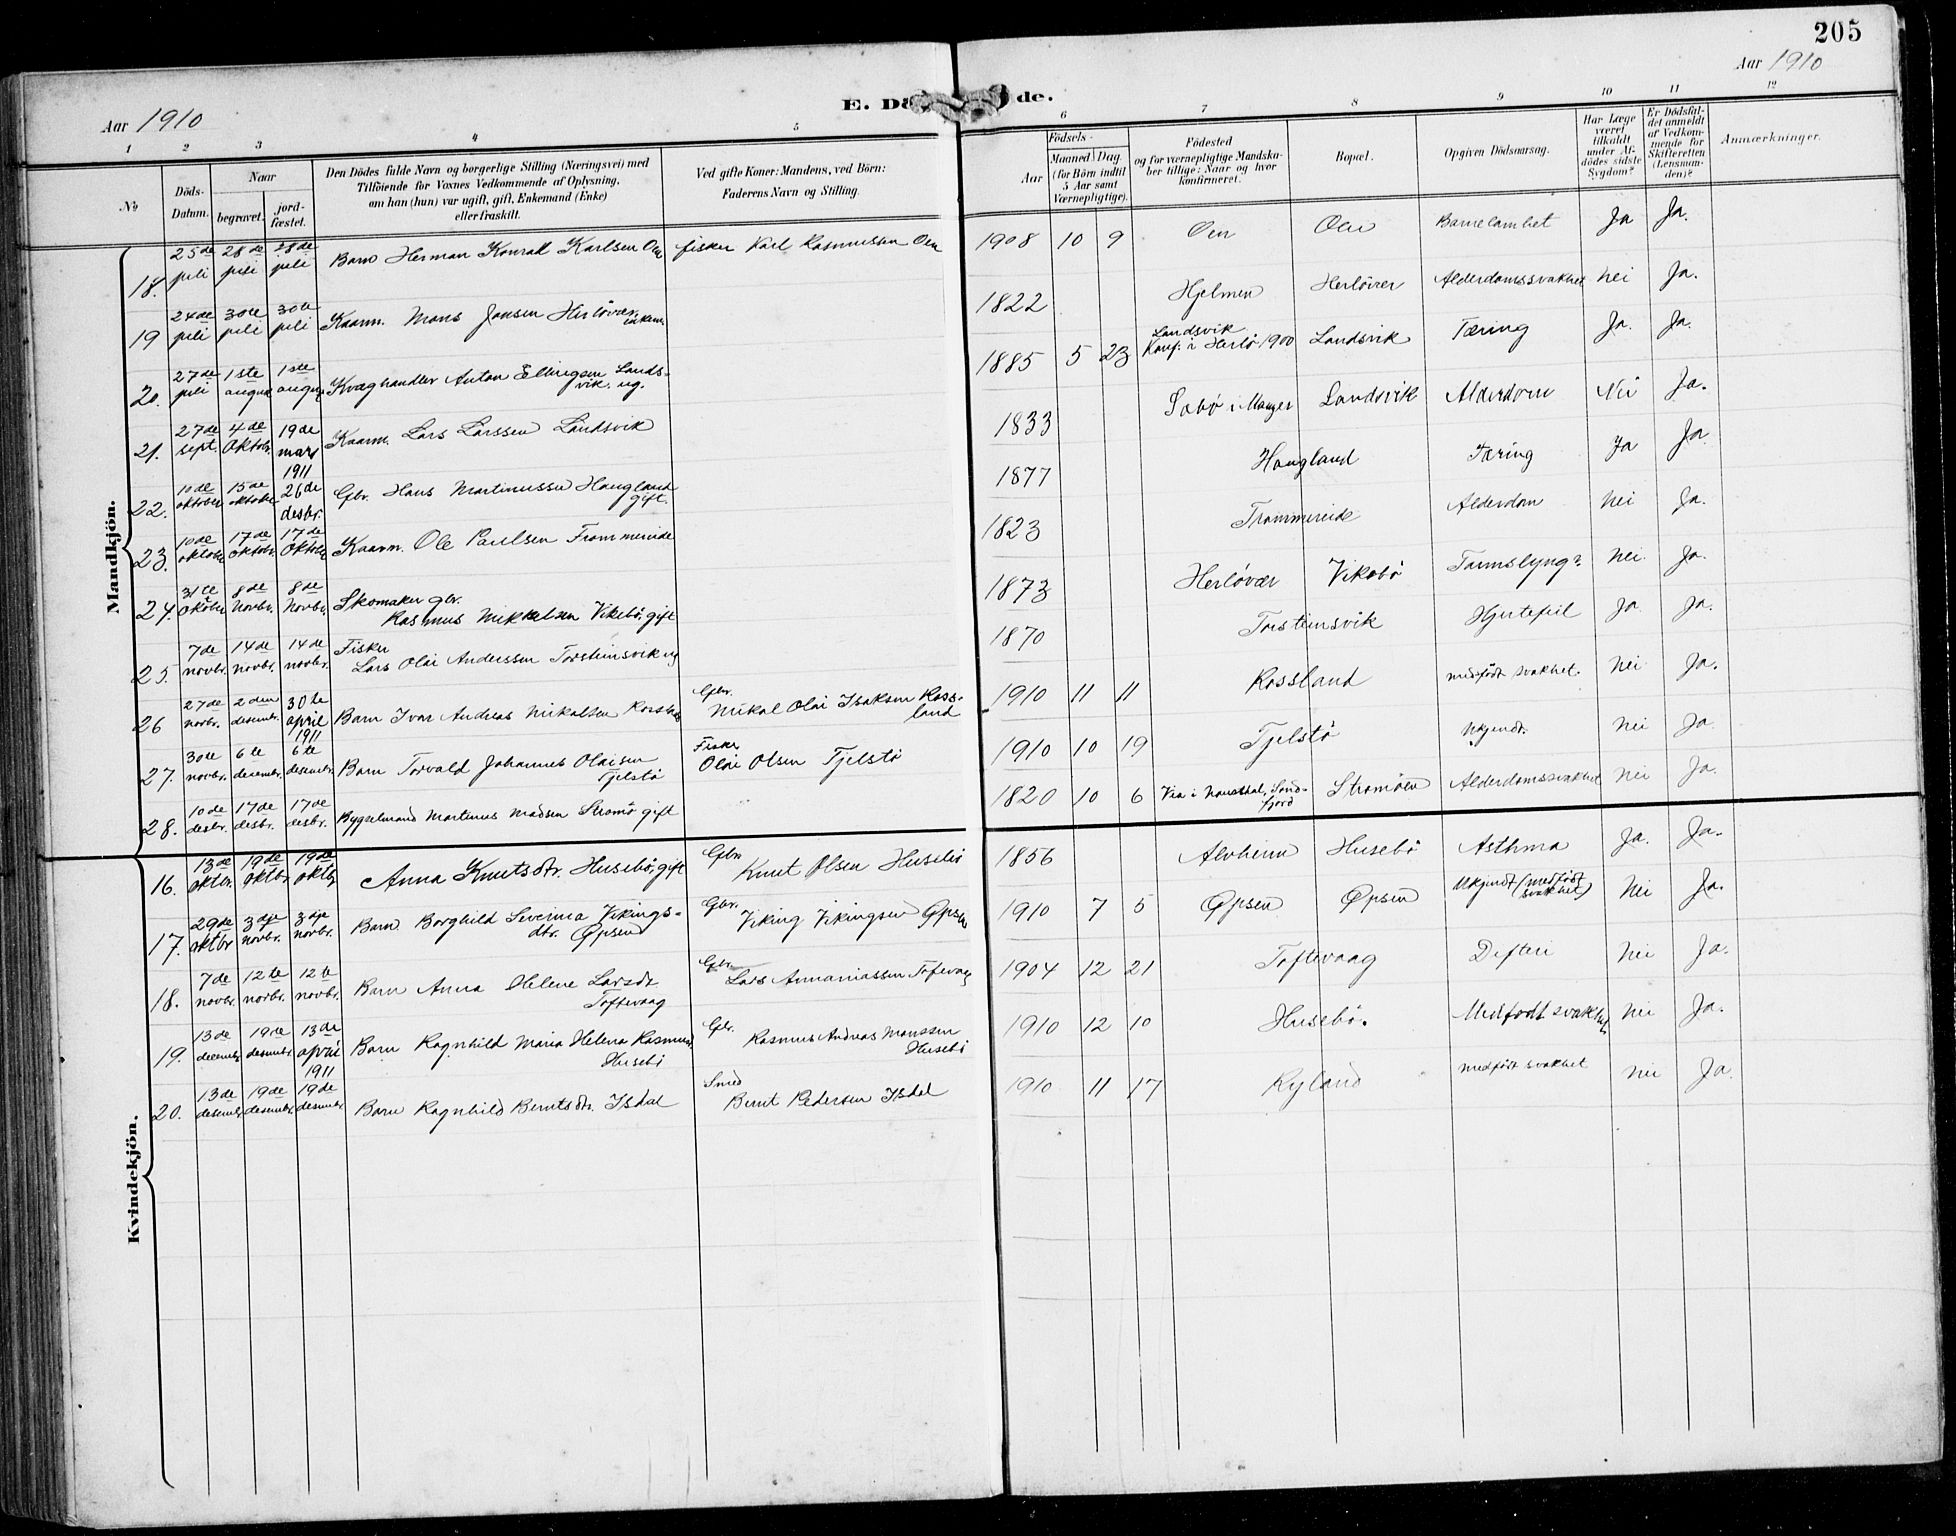 205
Aar 1910
Aar 1910
E. Dö de.
1 2 3 4 5
6 7 8 9 10 11 12
No
Döds-Datum.
Naar
begravet.
jord-fæstet.
Den Dödes fulde Navn og borgerlige Stilling (Næringsvei) med
Tilföiende for Voxnes Vedkommende af Oplysning,
om han (hun) var ugift, gift, Enkemand (Enke)
eller fraskilt.
Ved gifte Koner: Mandens, ved Börn:
Faderens Navn og Stilling.
Födsels-
Aar
Maaned Dag.
(for Börn indtil
5 Aar samt
Værnepligtige).
Födested
og for værnepligtige Mandska-
ber tillige: Naar og hvor
konfirmeret.
Bopæl.
Opgiven Dödsaarsag.
Har Læge
været
tilkaldt
under Af-
dödes sidste
Sygdom?
Er Dödsfal-
det anmeldt
af Vedkom-
mende for
Skifteretten
(Lensman-
den)?
Anmærkninger.
Mandkjön.
18. 25de juli 28de juli 28de juli Barn Herman Konrad Karlsen Oen fisker Karl Rasmussen Oen 1908 10 9 Oen Oen Ja Ja.
19 24de juli 30te juli 30te juli Kaarm. Mons Jansen Herløvær, enkem. 1822 Hjelmen Herløver Alderdomssvakhet nei Ja.
20. 27de juli 1ste august 1ste august Kvæghandler Anton Ellingsen Lands-
vik. ug. 1885 5 23 Landsvik
Konf. i Herlø 1900 Landsvik Tæring Ja. Ja.
21. 27de sept. 4de Oktobr. 19de mars
1911 Kaarm. Lars Larssen Landsvik 1833 Sabø i Manger Landsvik Alderdom Nei Ja.
22. 10de oktober 15de oktober 26de desbr. Gbr. Hans Martinussen Haugland
gift. 1877 Haugland Tæring Ja Ja
23. 10de oktober 17de oktobr. 17de Oktobr Kaarm. Ole Paulsen Trommereide 1823 Trommereide Alderdom nei Ja.
24. 31te oktober 8de Novbr. 8de Novbr. Skomaker gbr.
Rasmus Mikkelsen Vikebø, gift 1873 Herløvær Vikebø Tarmslyng? nei Ja.
25. 7de novbr. 14de novbr. 14de novbr. Fisker
Lars Olai Anderssen Torsteinsvik ug 1870 Torsteinsvik Hjertefeil Ja Ja.
26 27de novbr. 2den desembr. 30te april
1911 Barn Ivar Andreas Mikalsen Rossland Gbr.
Mikal Olai Isaksen Ross-
land 1910 11 11 Rossland medfødt svakhet. Nei Ja.
27. 30de novbr. 6te desembr. 6te desembr. Barn Torvald Johannes Olaisen
Tjelstø Fisker
Olai Olsen Tjelstø 1910 10 19 Tjelstø Ukjendt. nei Ja
28. 10de desbr. 17de desbr. 17de desbr. Bygselmand Martinus Madsen Strømø gift 1820 10 6 Via i Naustdal, Sønd-
fjord Strømøen Alderdomssvakhet nei Ja.
Kvindekjön.
16. 13de oktbr. 19de oktbr 19de oktbr Anna Knutsdtr. Husebø, gift Gbr
Knut Olsen Husebø 1856 Alvheim Husebø Asthma Ja. Ja.
17. 29de oktbr 3dje novbr. 3dje novbr. Barn Borghild Severina Vikings-
dtr. Øpsen Gbr.
Viking Vikingsen Øpsen 1910 7 5 Øpsen Øpsen Ukjendt (medfødt
svakhet) Nei Ja.
18. 7de novbr. 12te novbr. 12te novbr. Barn Anna Helene Larsdtr
Toftevaag Gbr
Lars Annaniassen Toftevaag 1904 12 21 Toftevaag Difteri Nei Ja.
19. 13de desembr 19de desembr 13de april
1911 Barn Ragnhild Maria Helena Rasmusd.
Husebø Gbr.
Rasmus Andreas Monssen
Husebø 1910 12 10 Husebø. Medfødt svakhet Nei Ja.
20. 13de desembr 19de desembr. 19de desembr. Barn Ragnhild Berntsdtr. Isdal Smed
Bernt Pedersen Isdal 1910 11 17 Ryland medfødt svakhet Nei Ja.